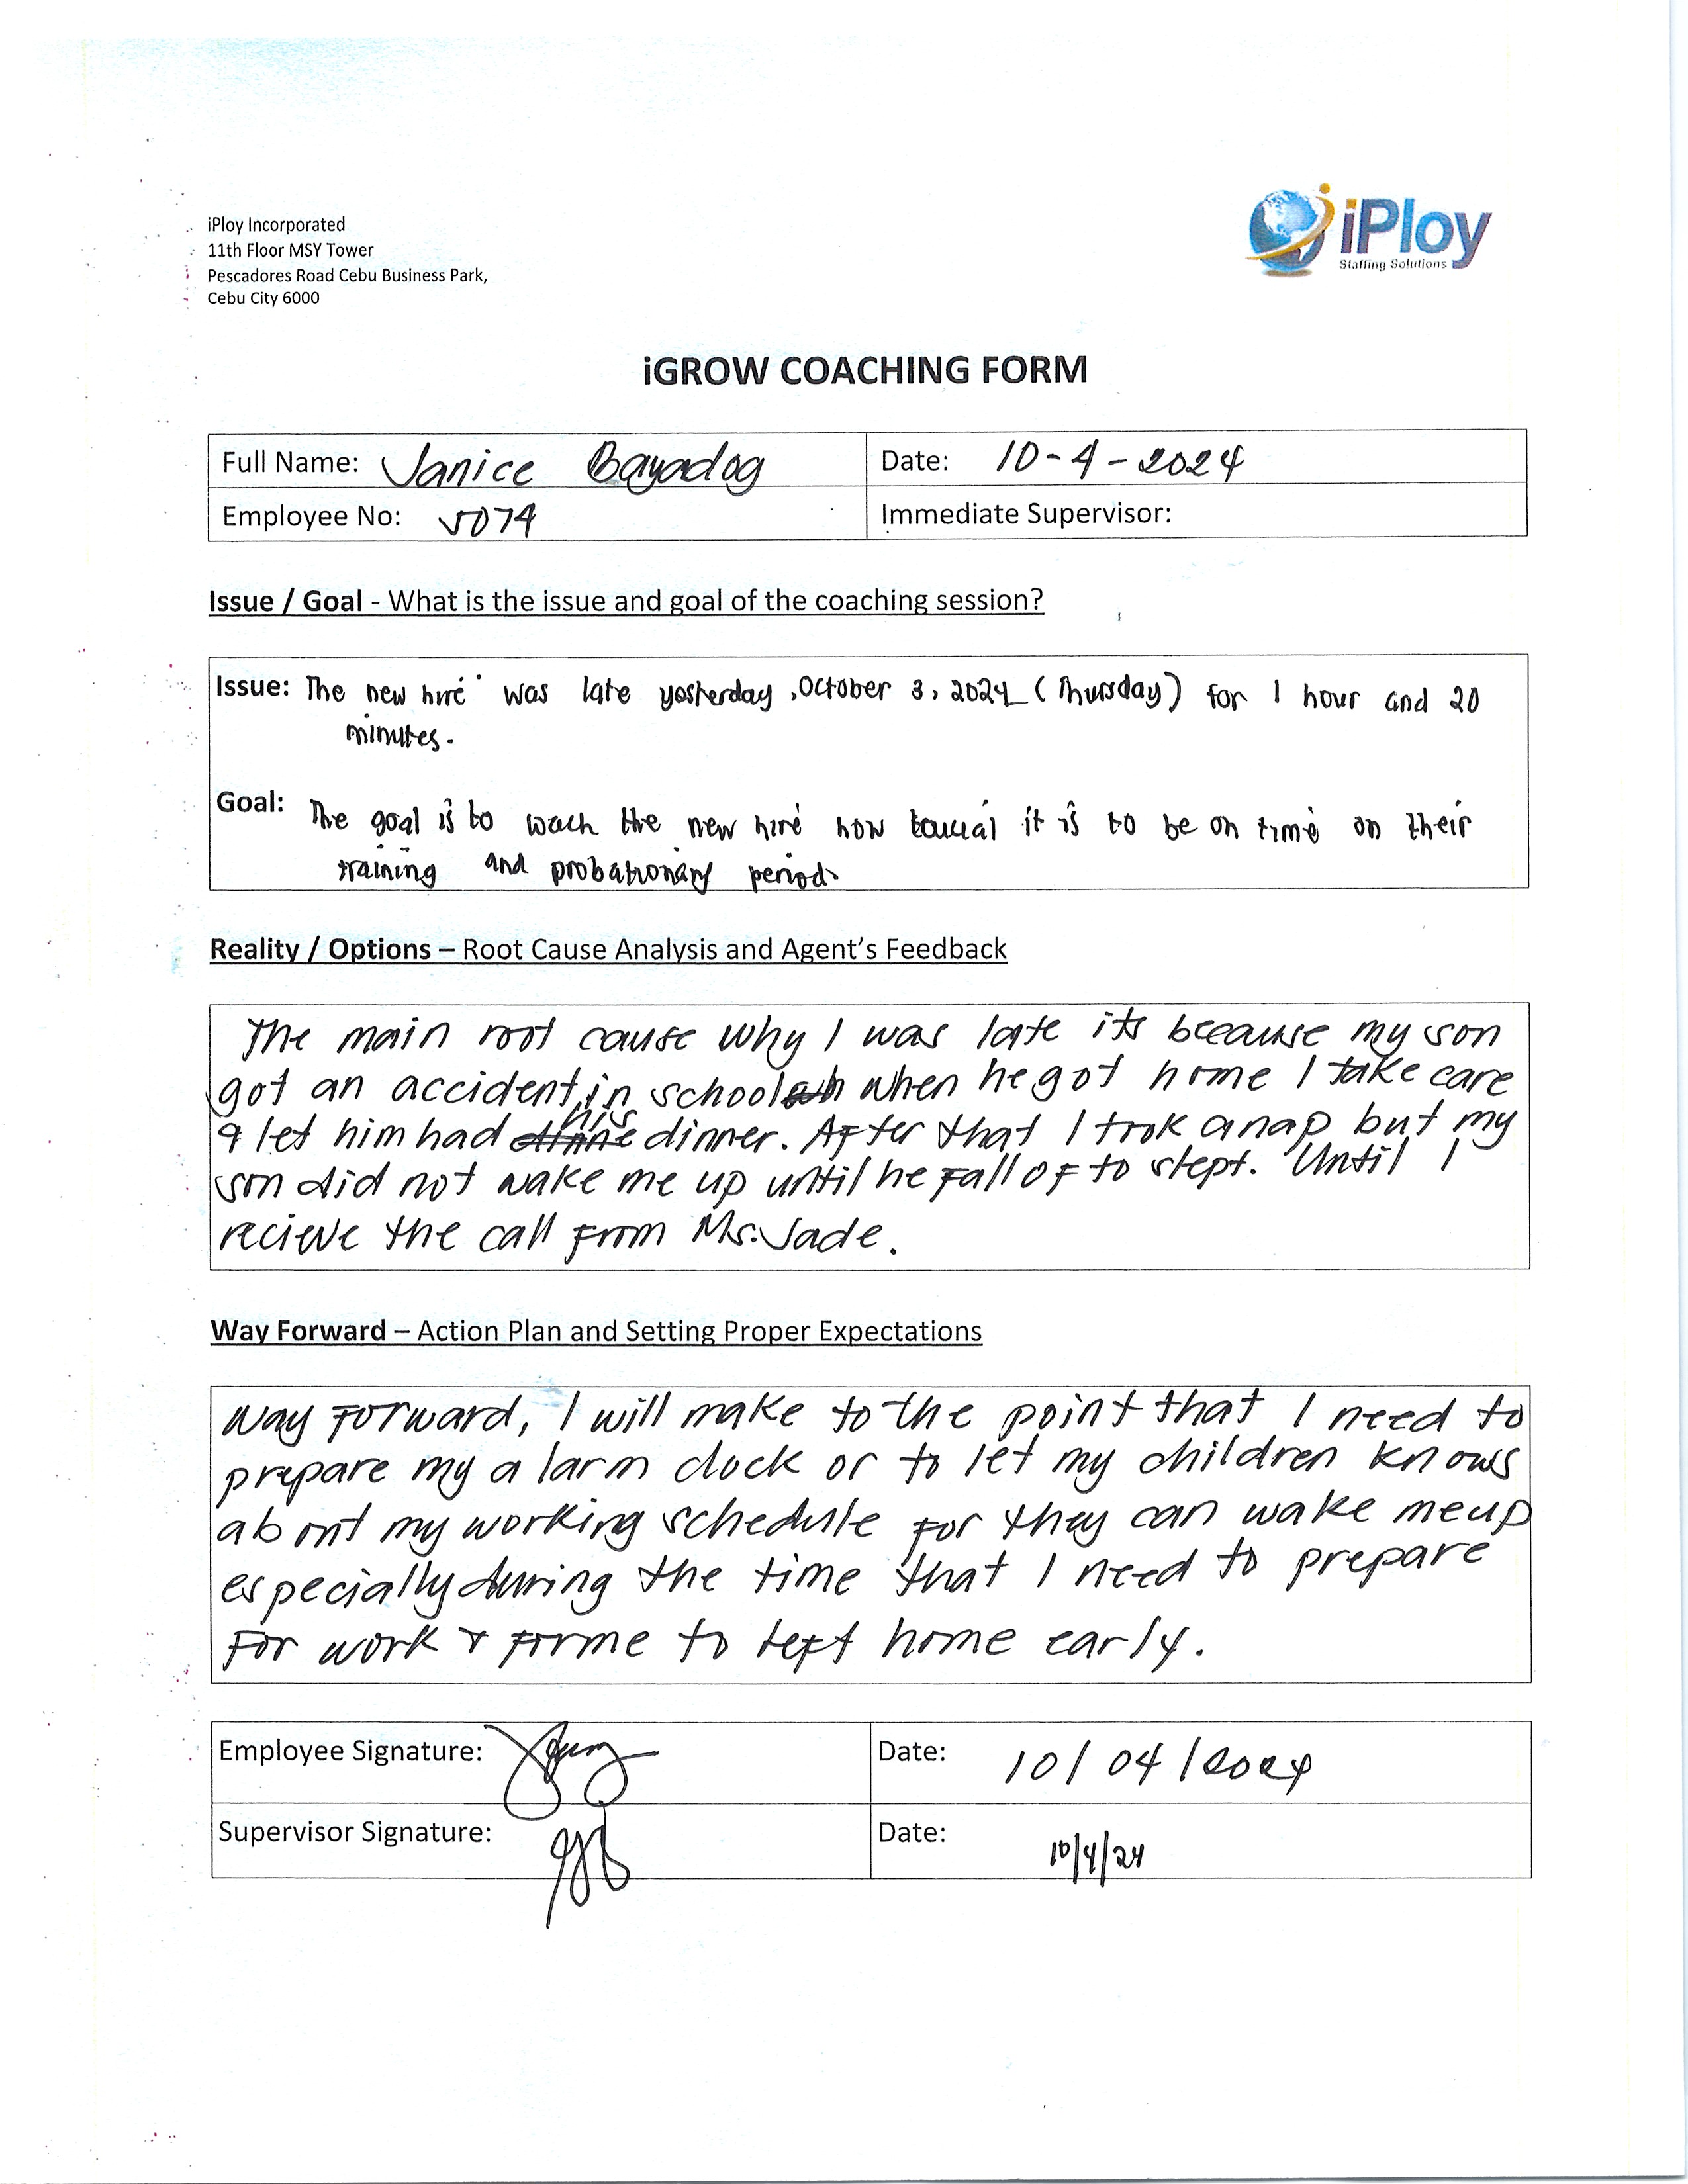 iPloy Incorporated
11th Floor MSY Tower
Pescadores Road Cebu Business Park,
Cebu City 6000
iPloy
Staffing Solutions
iGROW COACHING FORM
Full Name: Janice Bayadog
Date: 10-4-2024
Employee No: 5074
Immediate Supervisor:
Issue / Goal - What is the issue and goal of the coaching session?
Issue: The new hire was late yesterday, October 3, 2024 (Thursday) for 1 hour and 20
minutes.
Goal: The goal is to coach the new hire how crucial it is to be on time on their
training and probationary period.
Reality / Options – Root Cause Analysis and Agent's Feedback
The main root cause why I was late its because my son
got an accident, in school when he got home I take care
& let him had his dinner. After that I took a nap but my
son did not wake me up until he fall of to slept. Until I
recieve the call from Ms. Jade.
Way Forward – Action Plan and Setting Proper Expectations
Way Forward, I will make to the point that I need to
prepare my alarm clock or to let my children knows
about my working schedule for they can wake me up
especially during the time that I need to prepare
for work & for me to left home early.
Employee Signature:
Date: 10/04/2024
Supervisor Signature:
Date: 10/4/24